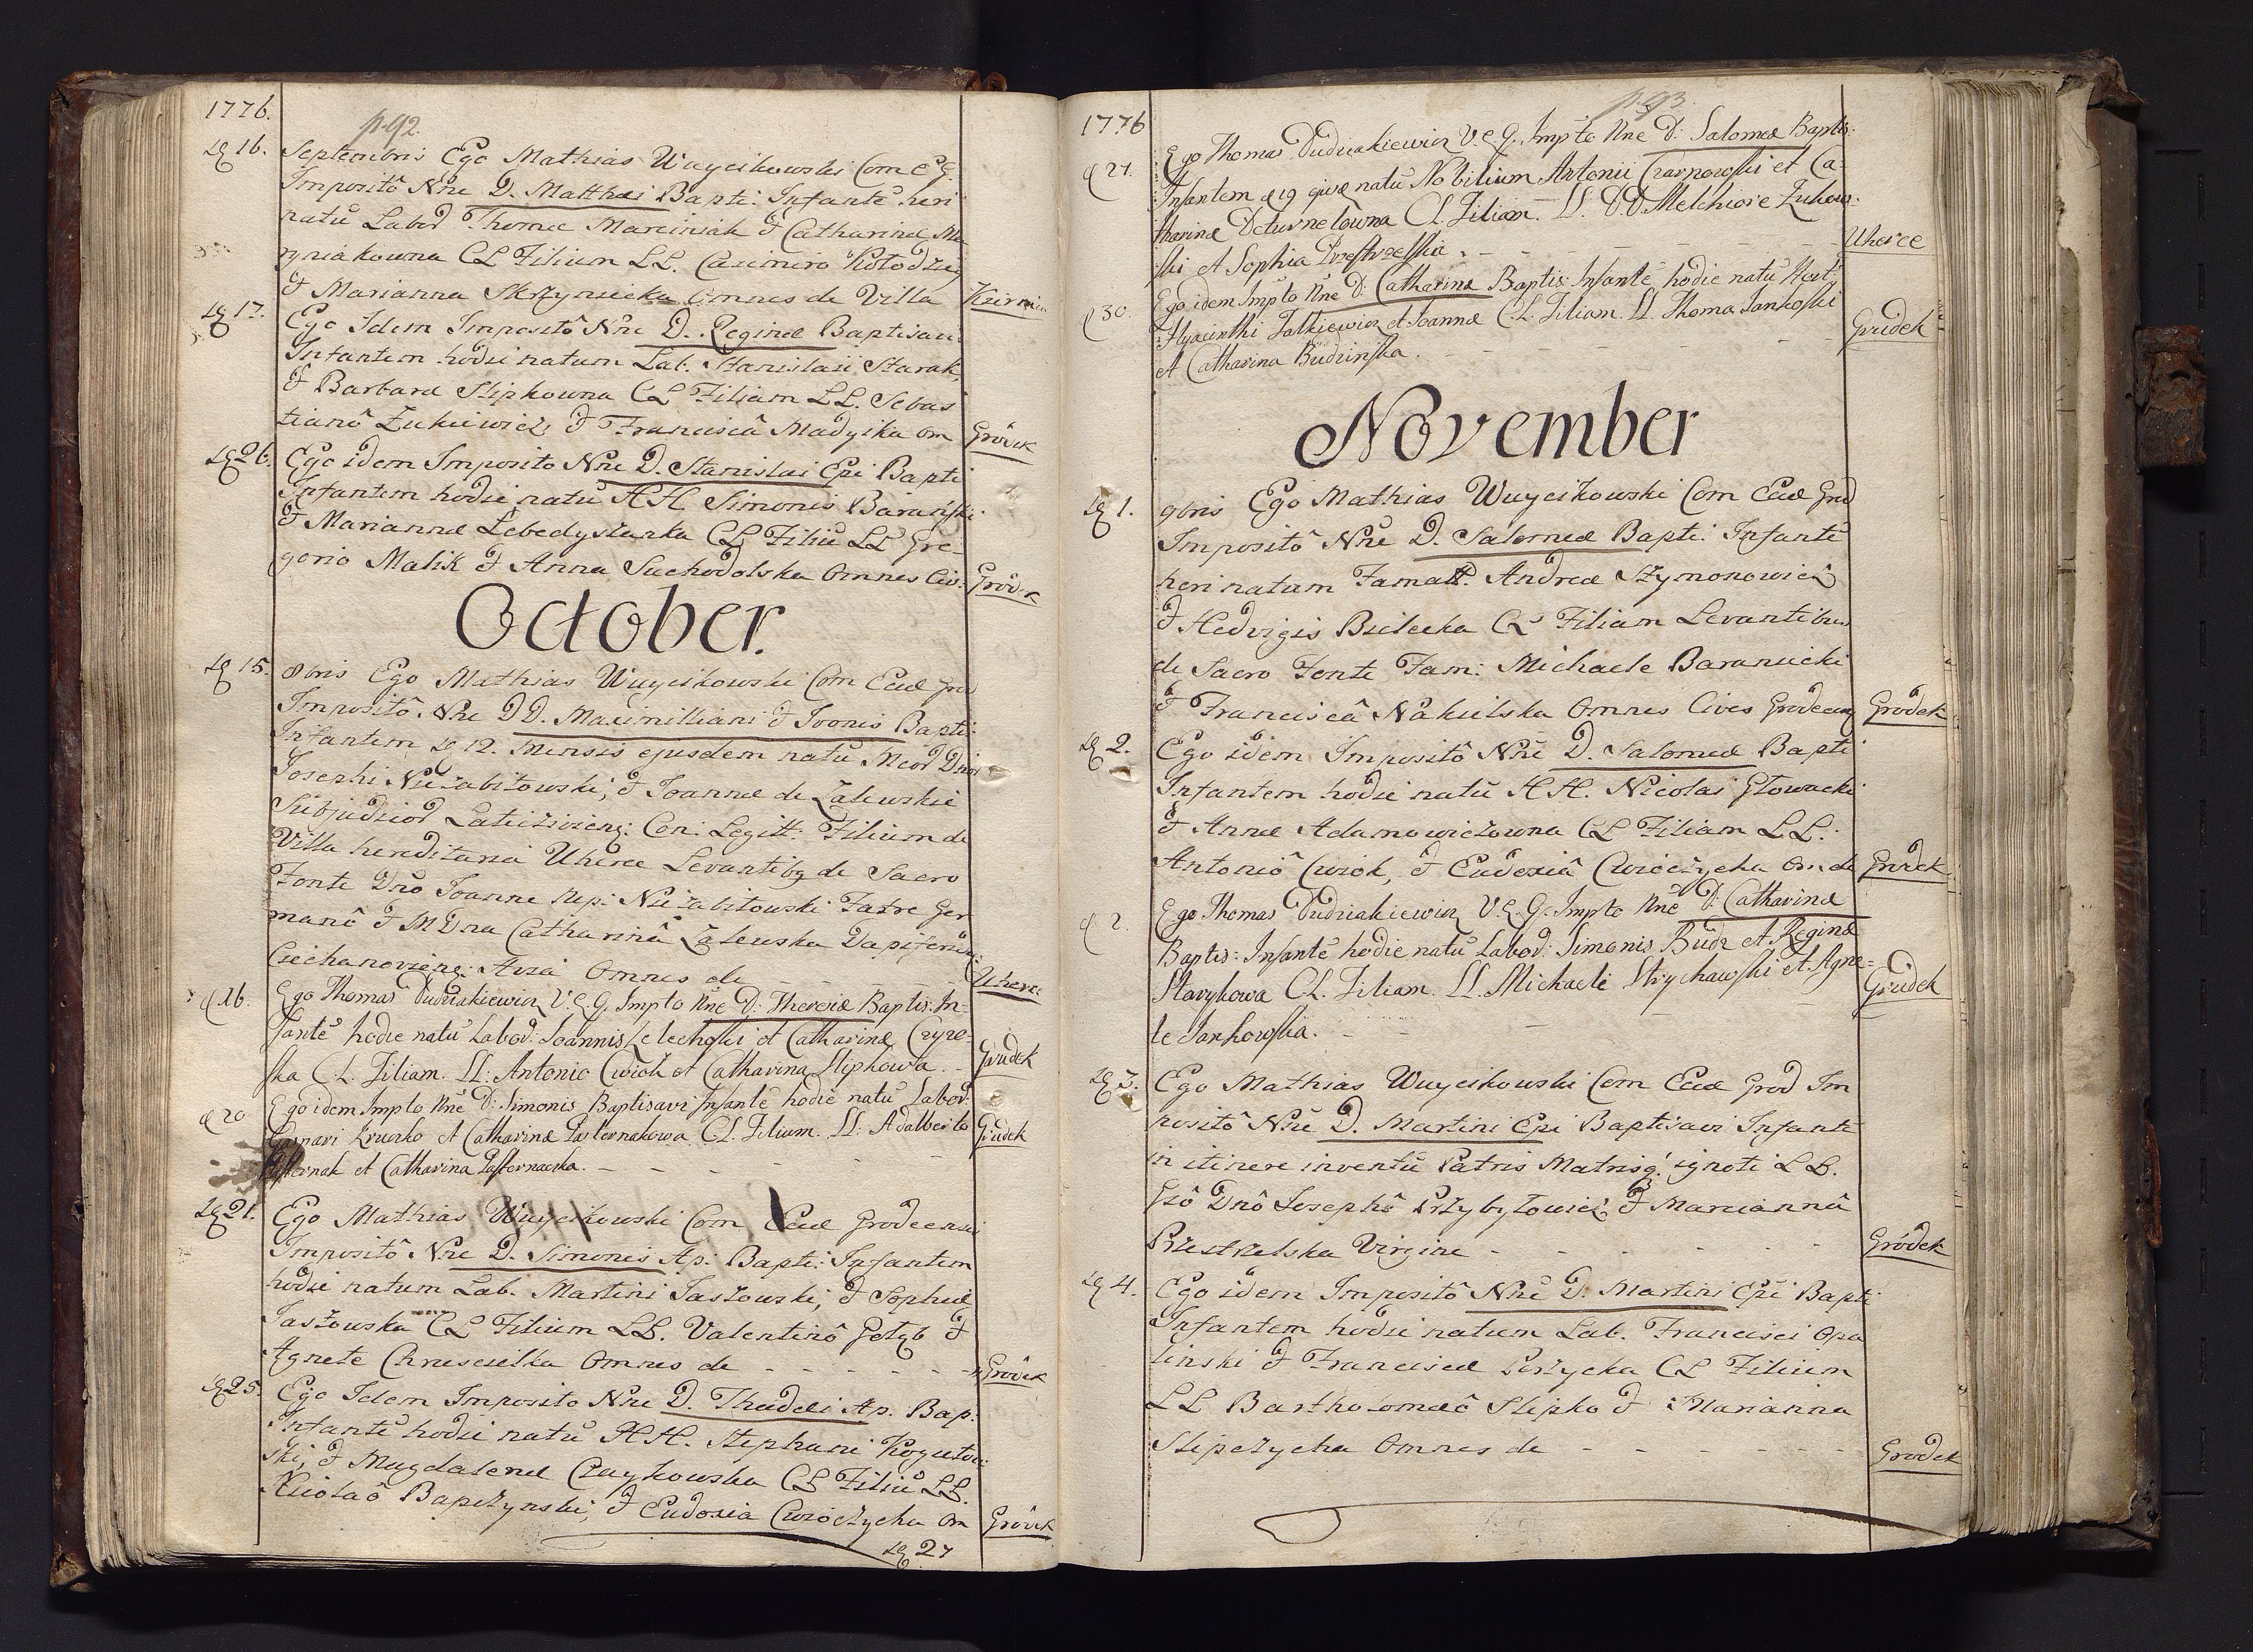 1776.
p. 92.
Septembris Ego Mathias Wuycikowski Com E G.
die 16.
Impositô Nñe D. Matthæi Bapti: Infantẽ heri
natũ Labor Thomæ Marciniak & Catharinæ Ma
ryniakowna CL Filium LL. Casimiro Kołodziey
& Marianna Skrzynicka omnes de Villa
die 17.
Ego Idem Impositô Nñe D. Reginæ Baptisavi
Infantem hodie natum Lab. Stanislai Starak,
& Barbaræ Slipkowna CL Filiam LL. Sebas
tianô Zukiewicz & Franciscâ Madycka om Gródek
die 26.
Ego idem Imposito Nñe D. Stanislai Epi Bapti
Infantem hodie natũ HH Simonis Barański
& Mariannæ Lebedyszanka CL Filiũ LL Gre-
gorio Malik & Anna Suchodolska Omnes Civ: Gródek
October.
die 15.
8bris Ego Mathias Wuycikowski Com Eccl Grod
Impositô Nñe DD. Maximilliani & Joonis Bapti:
Infantem die 12. Mensis ejusdem natũ MCor Dnor
Josephi Niezabitowski, & Joannæ de Zalewskie
Subjudicior Laticzoviens: Con: Legitt: Filium de
Villa hereditaria Uherce Levantibq de Sacro
Fonte Dño Joanne Nep: Niezabitowski Fatre Ger
manô & M Dna Catharinâ Zalewska Dapifera
Ciechanoviens: Avia Omnes de - - - Uherce
d 16.
Ego Thomas Dudziakiewicz V.E.G. Impto Nñe D: Theresiæ Baptis: In-
fantẽ hodie natũ Labor: Joannis Lelechoski et Catharinæ Czyze-
ska CL. Filiam. LL: Antonio Cwiok et Catharina Slipkowa. - Grudek
d 20
Ego idem Impto Nñe D: Simonis Baptisavi Infantẽ hodie natũ Labor:
Gaspari Kruczko et Catharinæ Pasternakowa CL. Filium. LL: Adalberto Grudek
Pasternak et Catharina Pasternacka. - - - - -
die 21.
Ego Mathias Wuycikowski Com Eccl Grodecensi
Impositô Nñe D. Simonis Ap: Bapti: Infantem
hodie natum Lab. Martini Jaszowski, & Sophiæ
Jaszowska CL Filium LL. Valentinô Gołąb &
Agnete Chruscielka Omnes de - - - - - Gródek
die 25.
Ego Idem Imposito Nñe D. Thadæi Ap. Bap:
Infantẽ hodie natũ HH. Stephani Kogutow
ski, & Magdalenæ Czaykowska CL Filiũ LL.
Nicolaô Bapczynski, & Eudoxia Cwioczycha Om Gródek
die 27
1776
p. 93.
d 27.
Ego Thomas Dudziakiewicz V.E.G. Impto Nñe D: Salomeæ Baptis:
Infantem d 19 ejusd natũ Nobilium Antonii Czarnowski et Ca-
tharinæ Deturnelowna CL. Filiam. LL. D.D. Melchiore Zukow-
ski et Sophia Przestrzelska. - - - - - - Uherce
d 30.
Ego idem Impto Nñe D: Catharinæ Baptis: Infantẽ hodie natũ
Hyacinthi Falkiewicz et Joannæ CL. Filiam. LL. Thoma Jankoski Grudek
et Catharina Budzinska. - - - - - -
November
die 1.
9bris Ego Mathias Wuycikowski Com Eccl Grod
Impositô Nñe D. Salomeæ Bapti: Infantẽ
heri natum Famatt. Andreæ Szymonowicz
& Hedvigis Bielecka CL Filiam Levantibus
de Sacro Fonte Fam: Michaele Baraniecki
& Franciscâ Nakielska Omnes Cives Grodecen Gródek
die 2.
Ego idem Impositô Nñe D. Salomeæ Bapti
Infantem hodie natũ HH. Nicolai Głowacki
& Annæ Adamowiczowna CL Filiam LL:
Antoniô Cwiok, & Eudoxiâ Cwioczycha Om de Grodek
d 2.
Ego Thomas Dudziakiewicz V.E.G. Impto Nñe D: Catharinæ
Baptis: Infantẽ hodie natũ Labor: Simonis Budz et Reginæ
Starykowa CL. Filiam. LL. Michaele Strychawski et Agne- Grudek
te Jankowska. - - - -
die 3.
Ego Mathias Wuycikowski Com Eccl Grod Im
positô Nñe D. Martini Epi Baptisavi Infantẽ
in itinere inventũ Patris Matrisq. ignoti L L.
Gsô Dnô Josephô Przybyłowicz & Mariannâ
Przestrzelska Virgine - - - - - - Gródek
die 4.
Ego idem Impositô Nñe D. Martini Epi Bapti
Infantem hodie natum Lab. Francisci Opa
linski & Franciscæ Perzycka CL Filium
LL Bartholomeô Slipko & Marianna
Slipczycha Omnes de - - - - - - Grodek